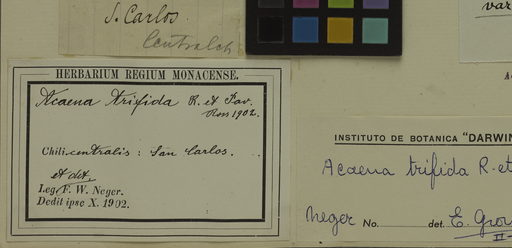 S. Carlos.
Centralch
var
HERBARIUM REGIUM MONACENSE.
Acaena trifida R. et Pav.
Ross 1902.
Chili centralis: San Carlos.
et det.
Leg. F. W. Neger.
Dedit ipse X. 1902.
INSTITUTO DE BOTANICA "DARWIN
Acaena trifida R. et
Neger No. det. E. Gro
II-